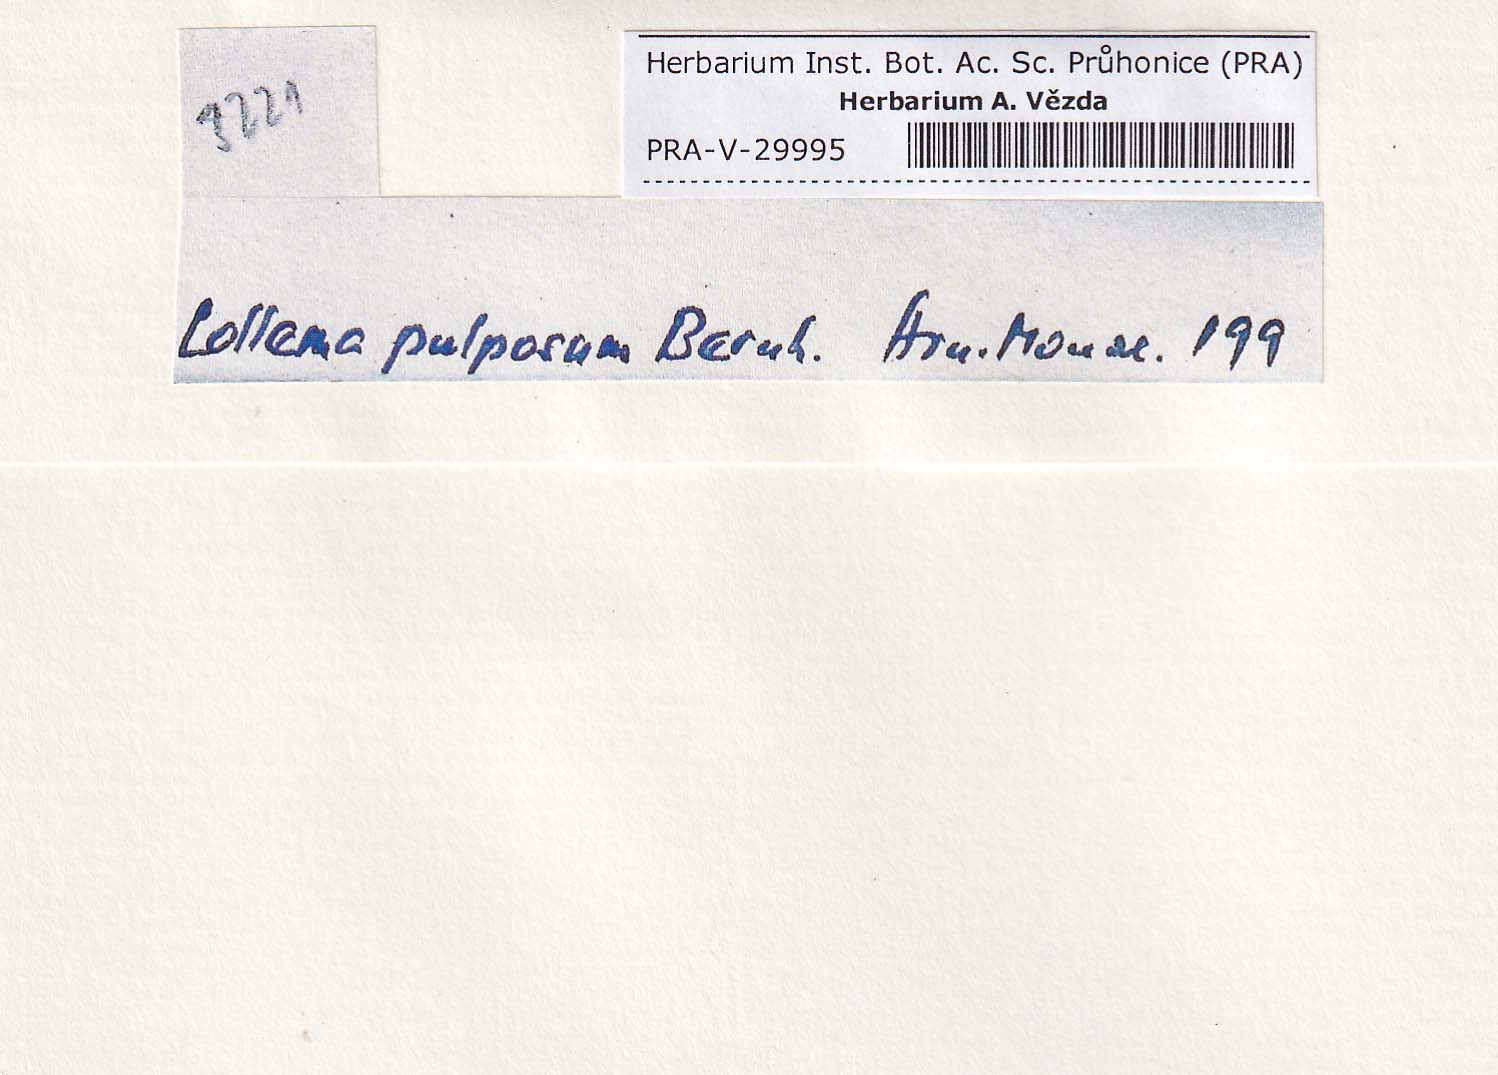 3221
Herbarium Inst. Bot. Ac. Sc. Průhonice (PRA)
Herbarium A. Vězda
PRA-V-29995
Collema pulposum Bernh. Arn. Monac. 199